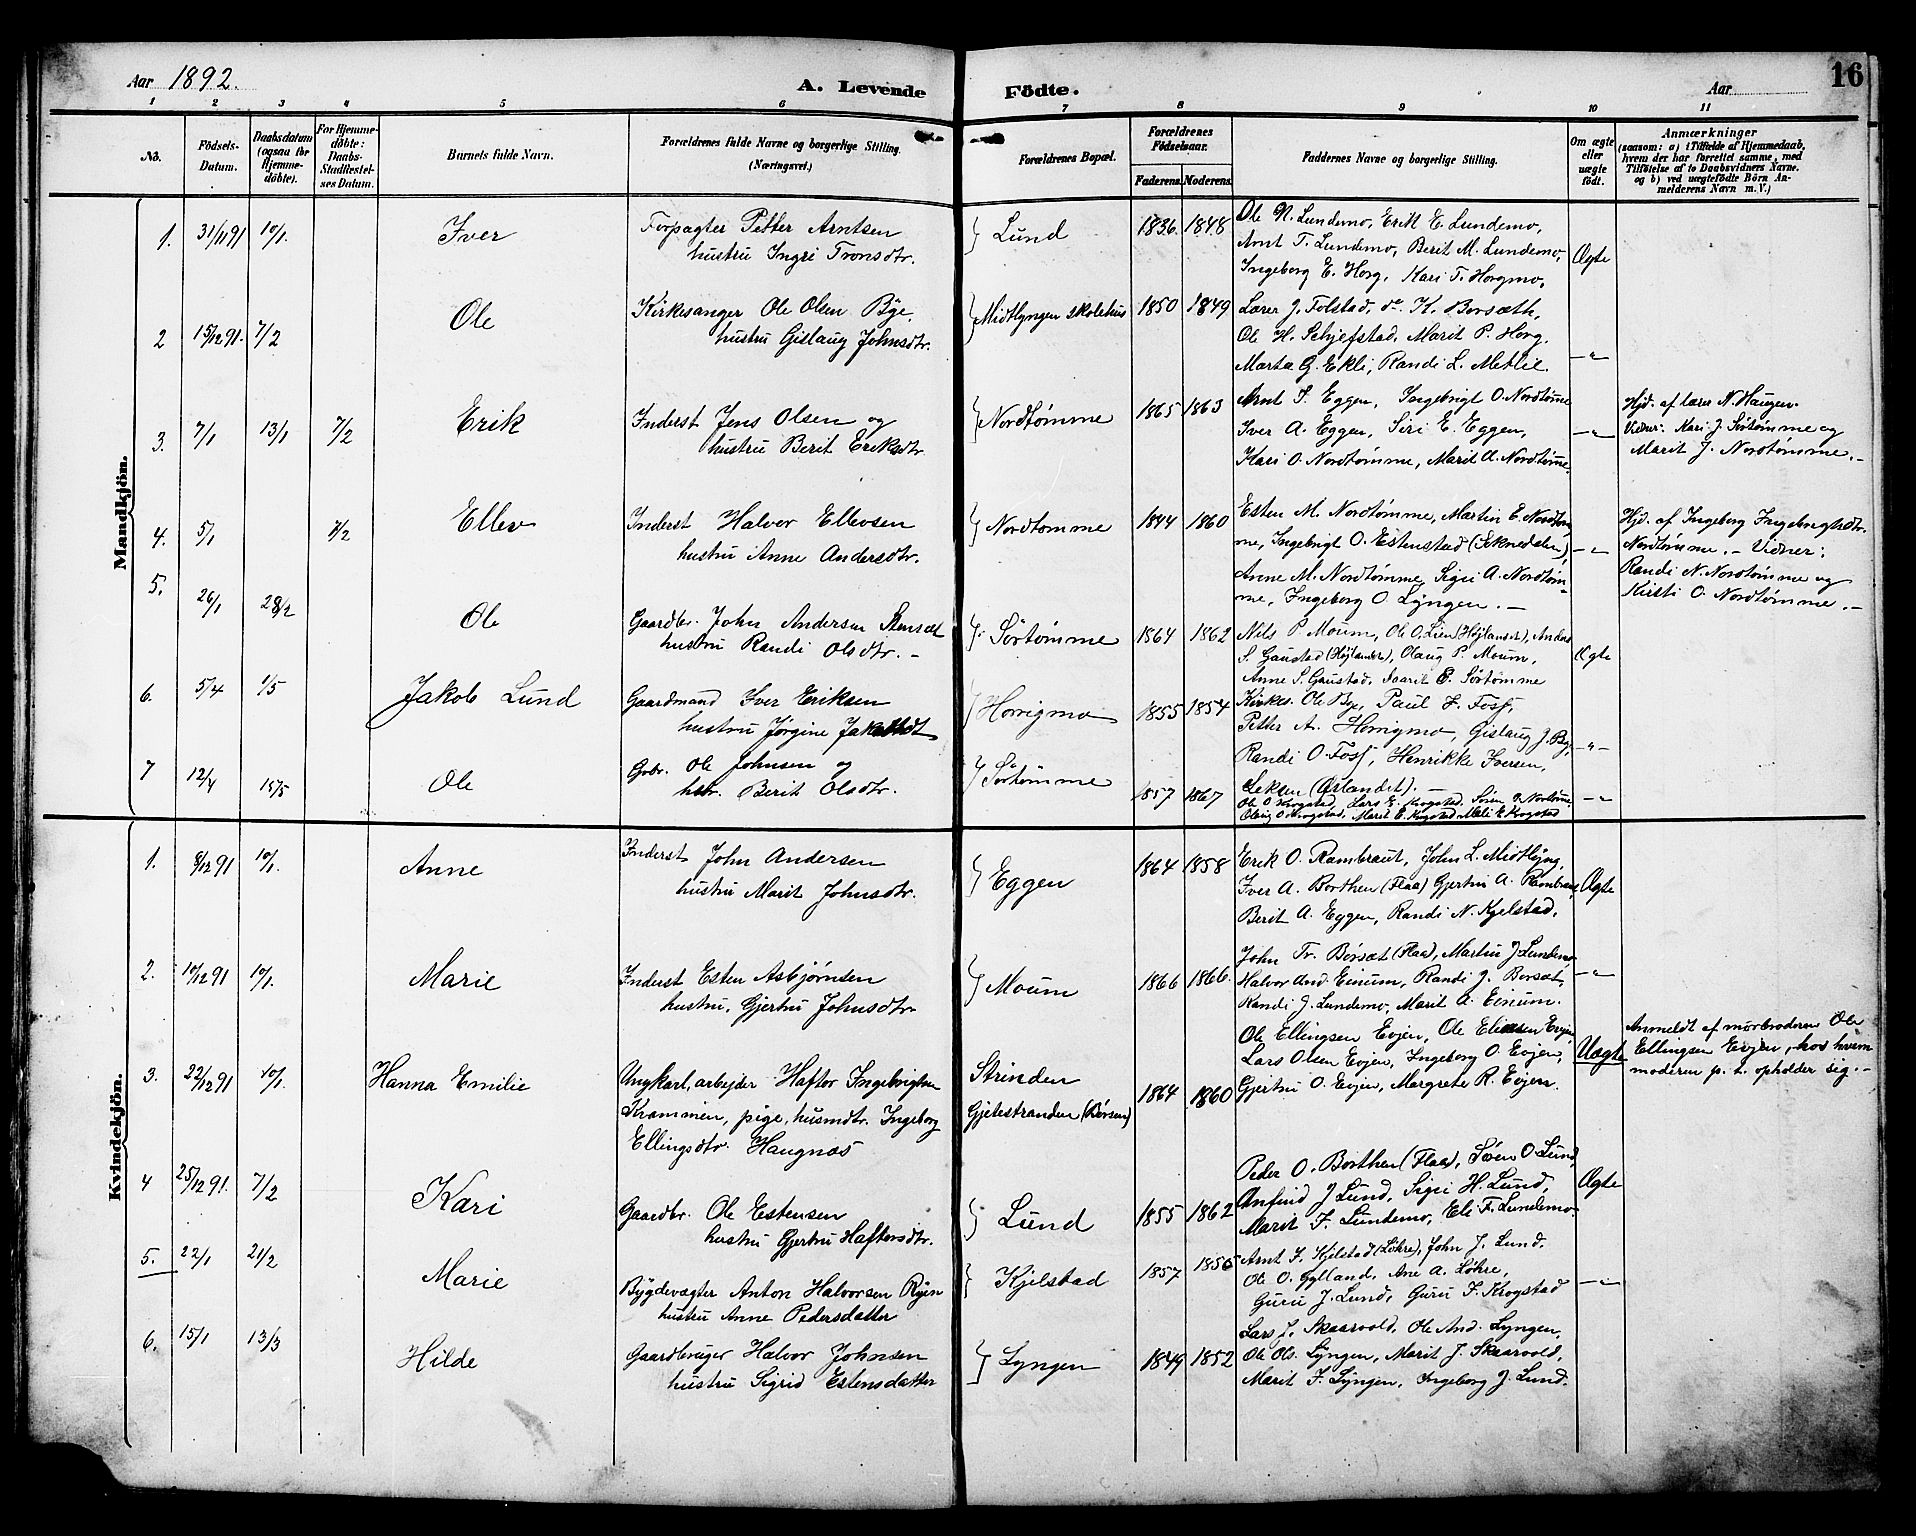 Aar 1892. A. Levende Födte. Aar 16
1 2 3 4 5 6 7 8 9 10 11
No. Födsels-Datum. Daabsdatum (ogsaa for Hjemme-döbte). For Hjemme-döbte: Daabs-Stadfæstelses Datum. Barnets fulde Navn. Forældrenes fulde Navne og borgerlige Stilling. (Næringsvei.) Forældrenes Bopæl. Forældrenes Födselsaar. Faderens. Moderens. Faddernes Navne og borgerlige Stilling. Om ægte eller uægte födt. Anmærkninger (saasom: a) i Tilfælde af Hjemmedaab, hvem der har forrettet samme, med Tilföielse af to Daabsvidners Navne, og b) ved uægtefödte Börn Anmelderens Navn m. V.)
Mandkjön.
1. 31/11 91 10/1. Iver Forpagter Petter Arntsen } Lund 1836. 1848 Ole N. Lundemo, Erik E. Lundemo,
hustru Ingri Tronsdtr. Arnt T. Lundemo, Berit M. Lundemo, Ægte
Ingeborg E. Horg, Kari T. Horgmo,
2 15/12 91. 7/2 Ole Kirkesanger Ole Olsen Bye, } Midtlyngen skolehus 1850 1849 Lærer J. Folstad, do K. Borsæth,
hustru Gislaug Johnsdtr. Ole H. Schjefstad, Marit P. Horg,
Marta G. Ekli, Randi L. Metlie. —"—
3. 7/1 13/1 7/2 Erik Inderst Jens Olsen og } Nordtømme 1865 1863 Arnt I. Eggen, Ingebrigt O. Nordtømme Hjd. af lærer N. Haugen.
hustru Berit Eriksdtr. Iver A. Eggen, Siri E. Eggen, —"— Vidner: Kari J. Sørtømme og
Kari O. Nordtømme, Marit A. Nordtømme. Marit J. Nordtømme.—
4. 5/1 7/2 Ellev Inderst Halvor Ellevsen } Nordtomme 1844 1860 Esten M. Nordtømme, Martin E. Nordtøm- Hjd. af Ingeborg Ingebrigtsdtr.
hustru Anne Andersdtr. me, Ingebrigt O. Estenstad (Soknedalen) —"— Nordtømme.— Vidner:
Anne M. Nordtømme, Sigri A. Nordtøm- Randi N. Nordtømme og
me, Ingeborg O. Lyngen.— Kirsti O. Nordtømme.—
5. 26/1 28/2 Ole Gaardbr. John Andersen Stensæt } Sörtømme 1864 1862 Nils P. Moum, Ole O. Lien (Höjlandet), Anders
hustru Randi Olsdtr.— S. Gaustad (Höjlandet), Olaug P. Moum, Ægte
Anne S. Gaustad, Marit E. Sörtömme
6. 5/4 1/5 Jakob Lund Gaardmand Iver Eriksen } Horrigmo 1855 1854 Kirkes. Ole Bye, Paul J. Foss,
hustru Jørgine Jakobsdt. Petter A. Horrigmo, Gislaug J. Bye, —"—
Randi O. Foss, Henrikke Iversen,
7 12/4 15/5 Ole Gvbr. Ole Johnsen og } Sörtömme 1857 1867 (Ørlandet).— —"—
hstr. Berit Olsdtr. Ole O. Krogstad, Lars E. Krogstad, Søren O. Nordtømme
Olaug O. Krogstad, Marit E. Krogstad Mali E. Krogstad
Kvindekjön.
1. 8/12 91 10/1. Anne Inderst John Andersen } Eggen 1864 1858 Erik O. Rambraut, John L. Midtlyng,
hustru Marit Johnsdtr. Iver A. Borthen (Flaa) Gjertru A. Rambraut, Ægte
Berit A. Eggen, Randi N. Kjelstad,
2. 10/12 91 10/1. Marie Inderst Esten Asbjørnsen } Moum 1866 1866. John Tr. Børsæt (Flaa), Martin J. Lundemo
hustru, Gjertru Johnsdtr. Halvor And. Einum, Randi J. Borsæt, —"—
Randi J. Lundemo, Marit A. Einum.
3. 22/12 91 10/1. Hanna Emilie Ungkarl, arbejder Haftor Ingebrigtsen Strinden 1864 1860 Ole Ellingsen Evjen, Ole Elissen Evjen, Uægte Anmeldt af morbroderen Ole
Krammen, pige, husmdtr. Ingeborg Gjetestranden (Börsen) Lars Olsen Evjen, Ingeborg O. Evjen, Ellingsen Evjen, hos hvem
Ellingsdtr. Haugnæs Gjertru O. Evjen, Margrete R. Evjen. moderen p. t. opholder sig.—
4 25/12 91. 7/2 Kari Gaardbr. Ole Estensen } Lund 1855 1862 Peder O. Borthen (Flaa), Søren O Lund, Ægte
hustru Gjertru Haftorsdtr. Anfind J Lund, Sigri H. Lund,
Marit F. Lundemo, Eli F. Lundemo.
5. 22/1 21/2 Marie Bygdevægter Anton Halvorsen Ryen } Kjelstad 1857 1856 Arnt F. Kjelstad (Løhre), John J. Lund,
hustru Anne Pedersdatter Ole O. Gylland, Ane A. Løhre, —"—
Guru J. Lund, Guru F. Krogstad
6. 15/1 13/3 Hilde Gaardbruger Halvor Johnsen } Lyngen 1849 1852 Lars J. Skaarvold, Ole And. Lyngen,
hustru Sigrid Estensdatter Ole Ols. Lyngen, Marit J. Skaarvold,
Marit F. Lyngen, Ingeborg J. Lund.